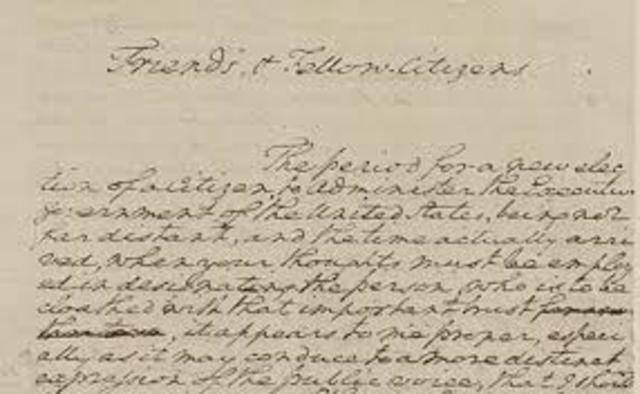 Friends, & Fellow-Citizens
The period for a new elec
tion of a Citizen, to administer the Executive
government of the United States, being not
far distant, and the time actually arri
ved, when your thoughts must be employ
ed in designating the person, who is to be
cloathed with that important trust
, it appears to me proper, especi
ally as it may conduce to a more distinct
expression of the public voice, that I should